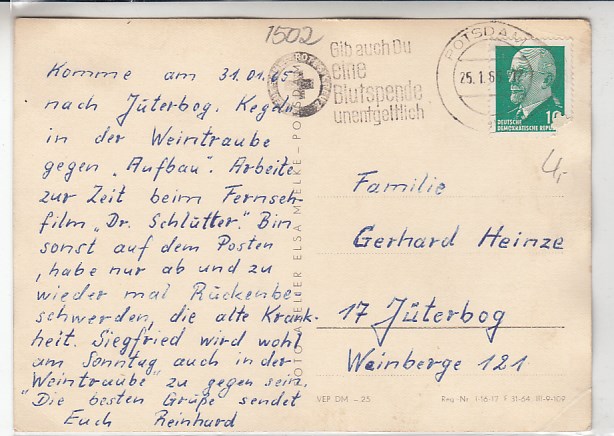 1502
Gib auch Du
eine
Blutspende
unentgeltlich
POTSDAM
25.1.65
10
DEUTSCHE
DEMOKRATISCHE REPUBLIK
4,-
Komme am 31.01.65
nach Jüterbog. Kegeln
in der Weintraube
gegen „Aufbau". Arbeite
zur Zeit beim Fernseh-
film „Dr. Schlütter". Bin
sonst auf dem Posten
, habe nur ab und zu
wieder mal Rückenbe-
schwerden, die alte Krank-
heit. Siegfried wird wohl
am Sonntag auch in der
Weintraube" zu gegen sein.
"Die besten Grüße sendet
Euch Reinhard
FOTO-ATELIER ELSA MIELKE – POTSDAM
Familie
Gerhard Heinze
17 Jüterbog
Weinberge 121
VEP DM –25
Reg.-Nr. I-16-17 F 31-64 III-9-109